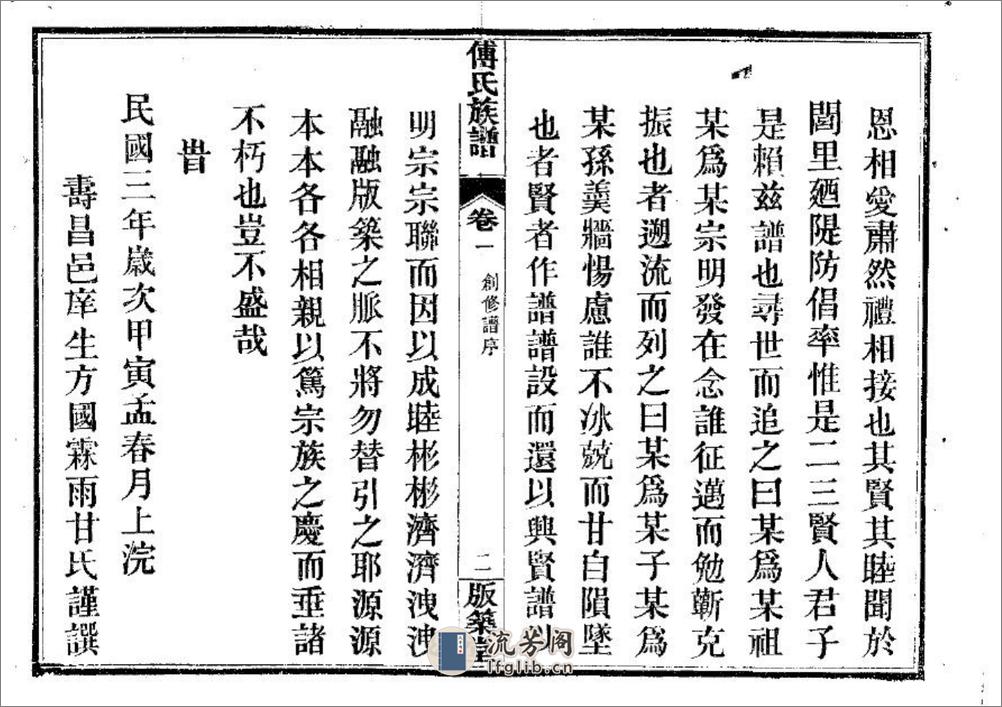 恩相愛肅然禮相接也其賢其睦聞於
閭里廼隄防倡率惟是二三賢人君子
是賴兹譜也尋世而追之曰某爲某祖
某爲某宗明發在念誰征邁而勉蘄克
振也者遡流而列之曰某爲某子某爲
某孫羹牆惕慮誰不冰兢而甘自隕墜
也者賢者作譜譜設而還以興賢譜以
傅氏族譜
卷一
創修譜序
二
版築堂
明宗宗聯而因以成睦彬彬濟濟洩洩
融融版築之脈不將勿替引之耶源源
本本各各相親以篤宗族之慶而垂諸
不朽也豈不盛哉
旹
民國三年歲次甲寅孟春月上浣
壽昌邑庠生方國霖雨甘氏謹譔
流芳阁
lfglib.cn